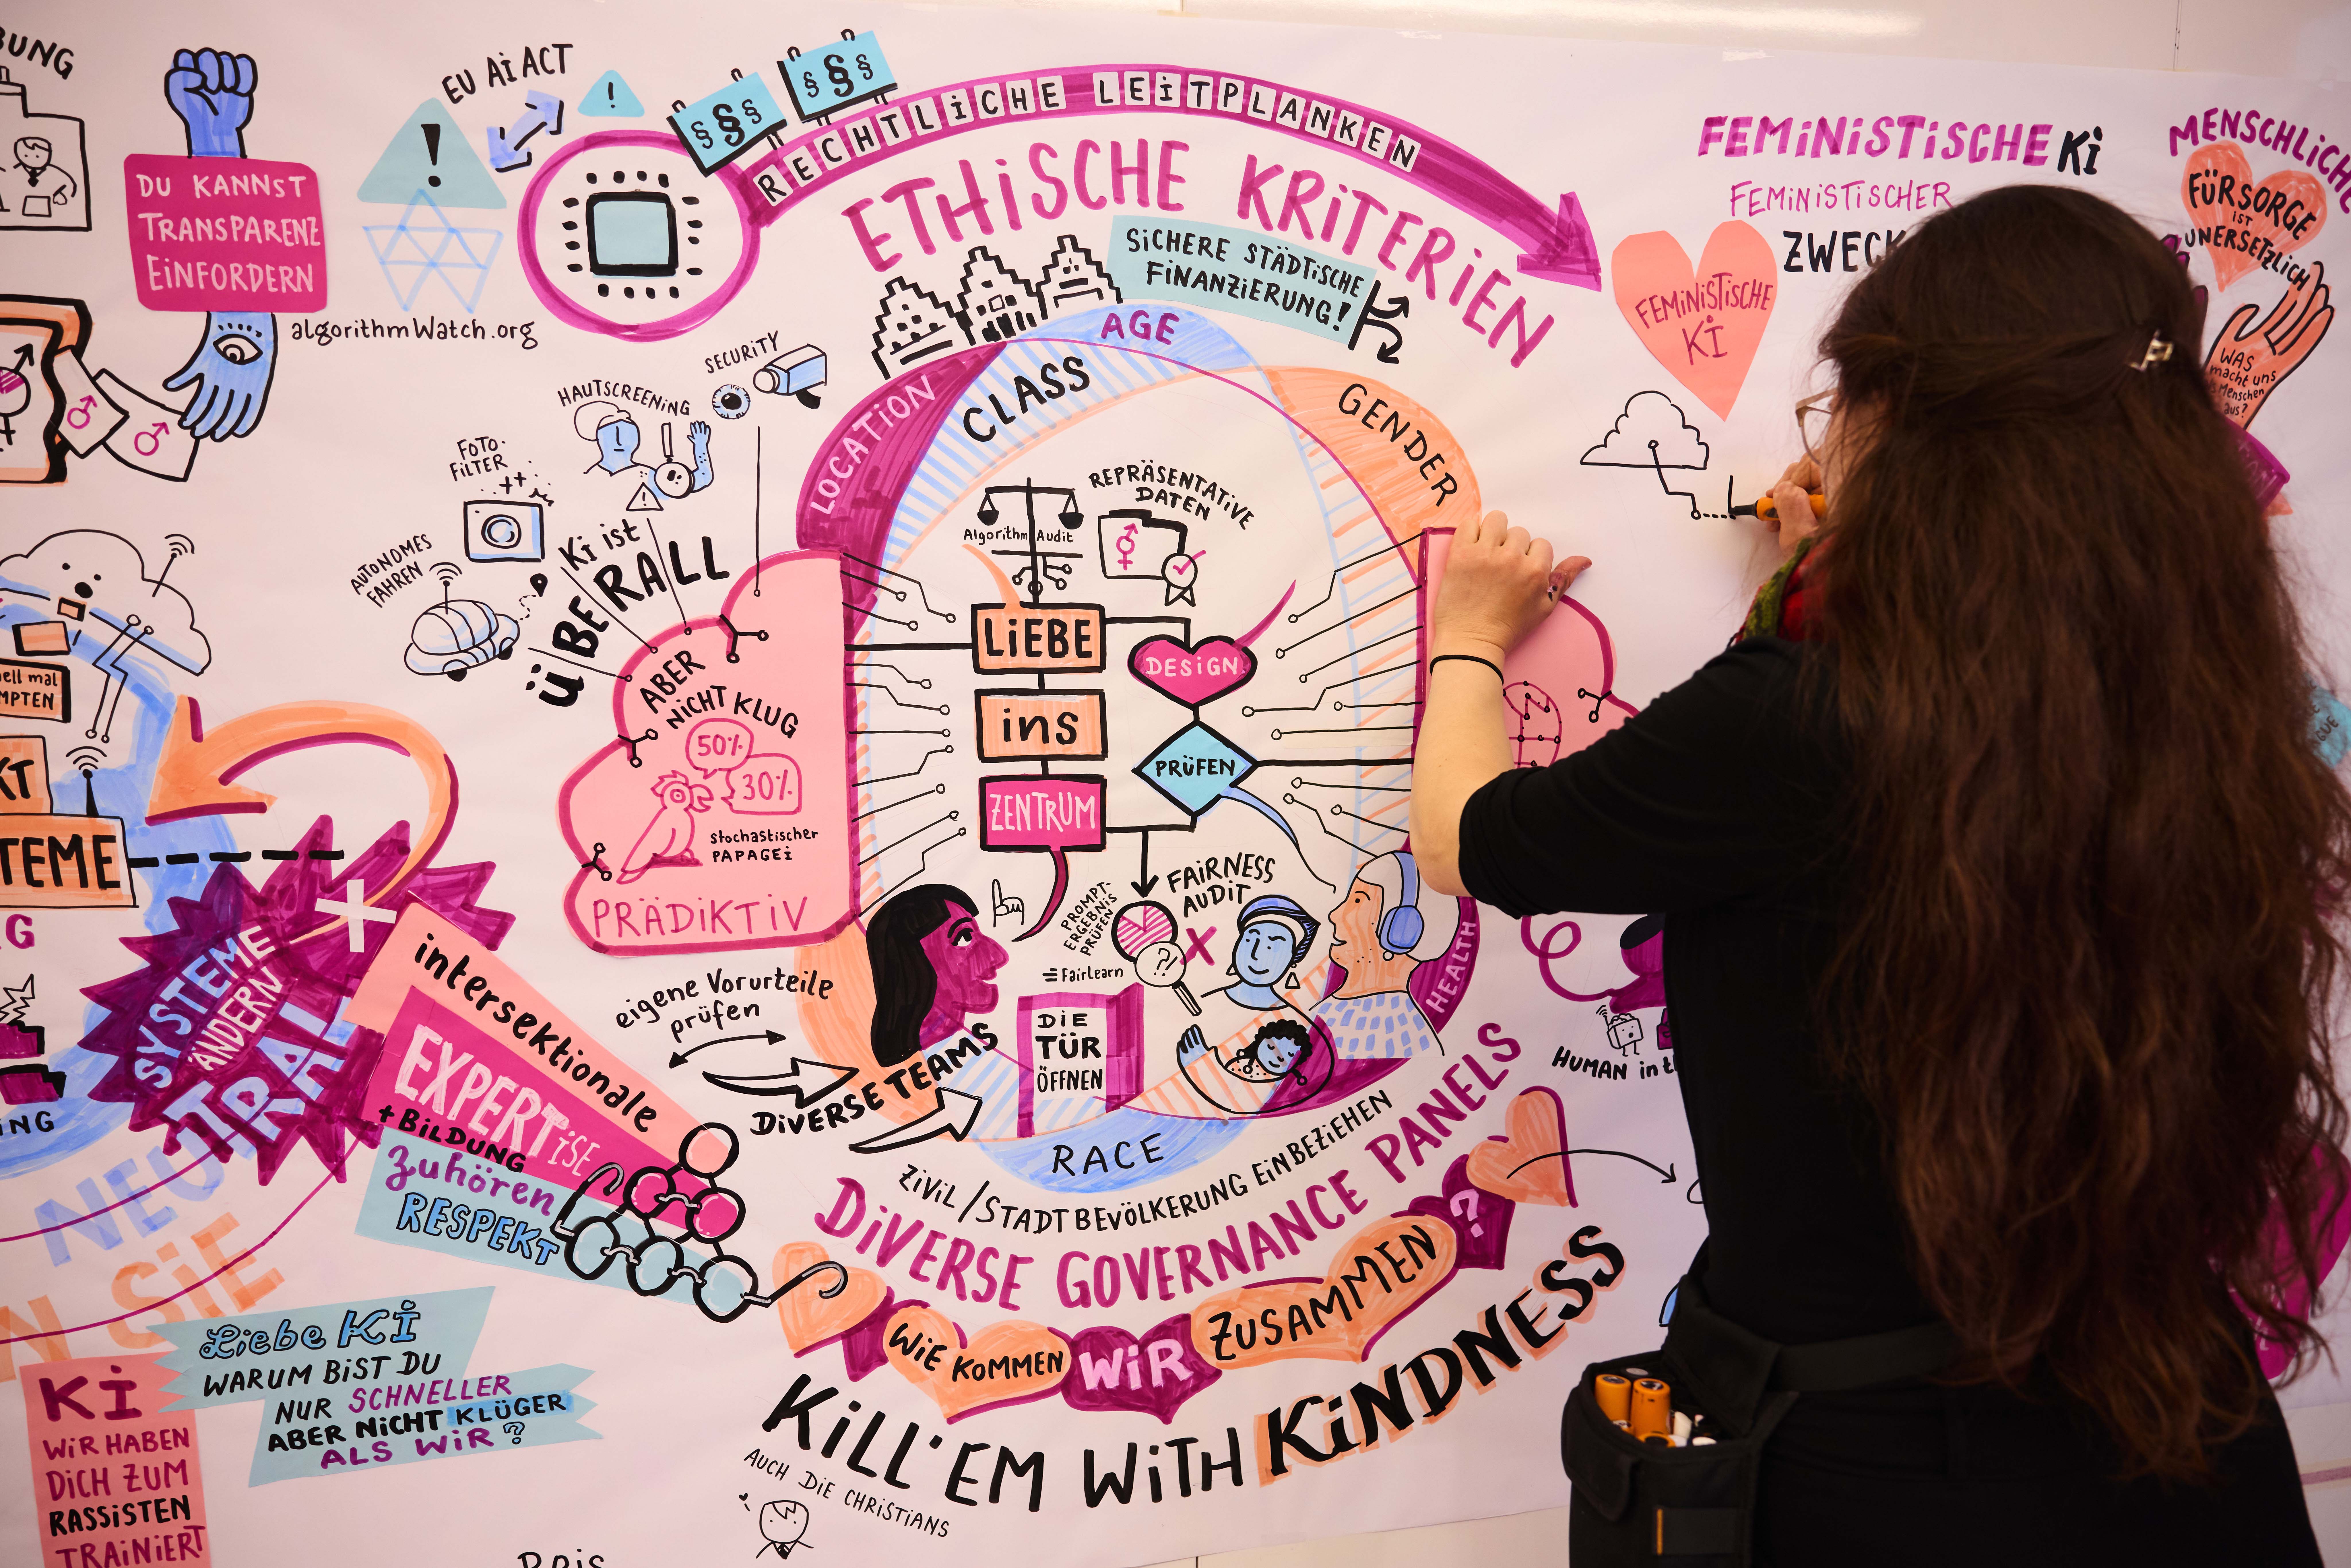 EU AI ACT
DU KANNST
TRANSPARENZ
EINFORDERN
algorithmWatch.org
!
!
§§§
§§§
RECHTLICHE LEITPLANKEN
ETHISCHE KRITERIEN
SICHERE STÄDTISCHE
FINANZIERUNG!
FEMINISTISCHE KI
FEMINISTISCHER
FEMINISTISCHE
KI
MENSCHLICHE
FÜRSORGE
IST
UNERSETZLICH
WAS
macht uns
Menschen
aus?
AUTONOMES
FAHREN
FOTO-
FILTER
HAUTSCREENING
SECURITY
KI ist
ÜBERALL
ABER
NICHT KLUG
50%
30%
stochastischer
PAPAGEI
PRÄDIKTIV
LOCATION
CLASS
AGE
GENDER
HEALTH
RACE
Algorithm Audit
REPRÄSENTATIVE
DATEN
LIEBE
ins
ZENTRUM
DESIGN
PRÜFEN
FAIRNESS
AUDIT
PROMPT-
ERGEBNIS
PRÜFEN
?!
Fairlearn
DIE
TÜR
ÖFFNEN
eigene Vorurteile
prüfen
DIVERSE TEAMS
ZIVIL/STADTBEVÖLKERUNG EINBEZIEHEN
DIVERSE GOVERNANCE PANELS
WIE KOMMEN WIR ZUSAMMEN ?
KILL'EM WITH KINDNESS
AUCH DIE CHRISTIANS
HUMAN in
SYSTEME
ÄNDERN
intersektionale
EXPERTISE
+ BILDUNG
zuhören
RESPEKT
SIE
Liebe KI
WARUM BIST DU
NUR SCHNELLER
ABER NICHT KLÜGER
ALS WIR?
KI
WIR HABEN
DICH ZUM
RASSISTEN
TRAINIERT